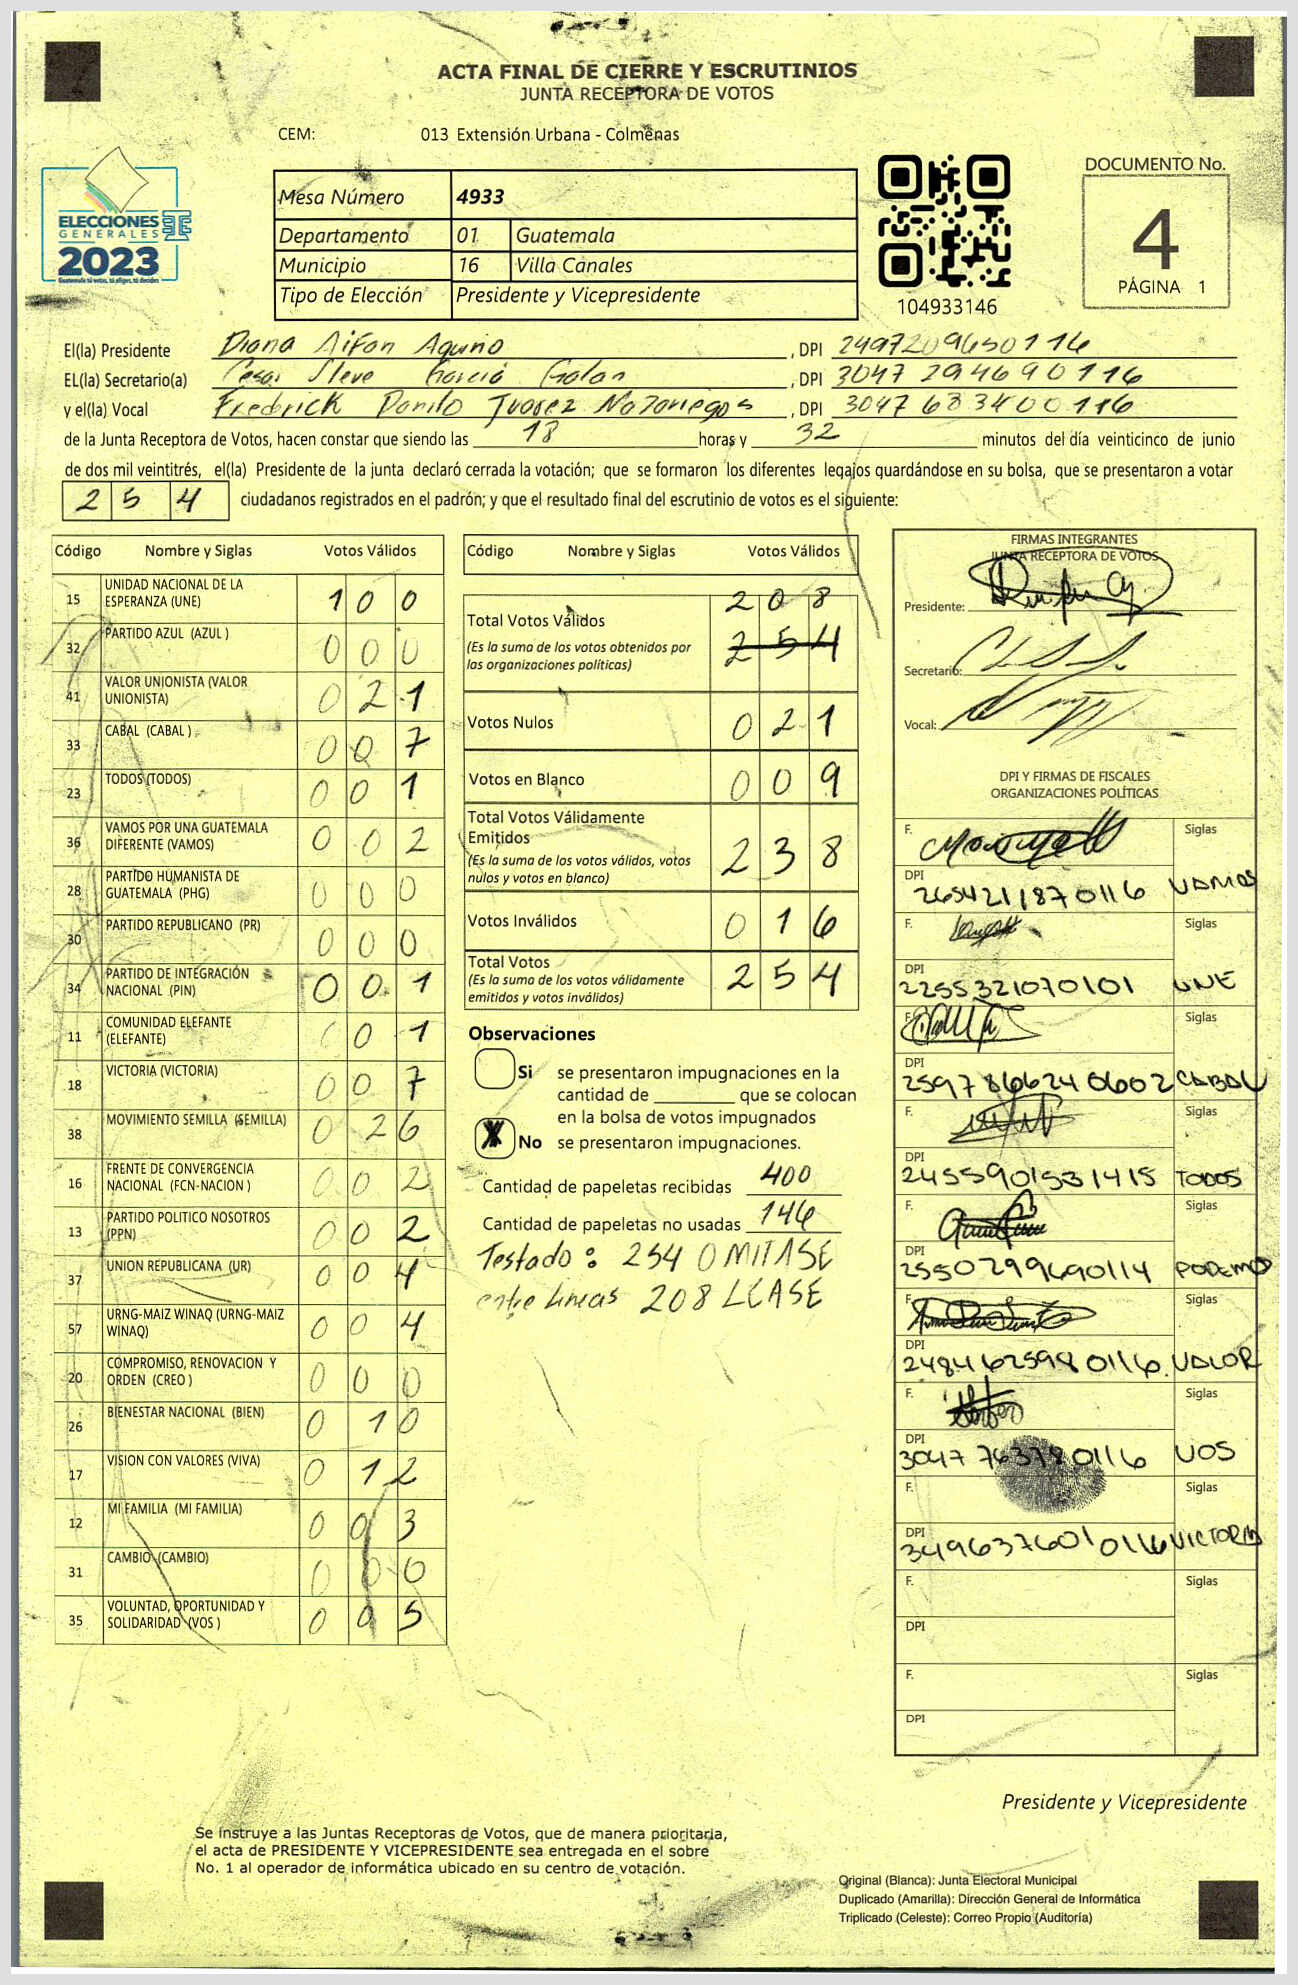 ACTA FINAL DE CIERRE Y ESCRUTINIOS
JUNTA RECEPTORA DE VOTOS
CEM: 013 Extensión Urbana - Colmenas
ELECCIONES
GENERALES
2023
Guatemala tú votas, tú eliges, tú decides
Mesa Número 4933
Departamento 01 Guatemala
Municipio 16 Villa Canales
Tipo de Elección Presidente y Vicepresidente
104933146
DOCUMENTO No.
4
PÁGINA 1
El(la) Presidente Diana Aifan Aquino, DPI 2497209650116
EL(la) Secretario(a) Cesar Steve García Galan, DPI 3047294690116
y el(la) Vocal Frederick Danilo Juarez Mazariegos, DPI 3047683400116
de la Junta Receptora de Votos, hacen constar que siendo las 18 horas y 32 minutos del día veinticinco de junio
de dos mil veintitrés, el(la) Presidente de la junta declaró cerrada la votación; que se formaron los diferentes legajos guardándose en su bolsa, que se presentaron a votar
254 ciudadanos registrados en el padrón; y que el resultado final del escrutinio de votos es el siguiente:
Código Nombre y Siglas Votos Válidos
15 UNIDAD NACIONAL DE LA ESPERANZA (UNE) 100
32 PARTIDO AZUL (AZUL ) 000
41 VALOR UNIONISTA (VALOR UNIONISTA) 021
33 CABAL (CABAL ) 007
23 TODOS (TODOS) 001
36 VAMOS POR UNA GUATEMALA DIFERENTE (VAMOS) 002
28 PARTIDO HUMANISTA DE GUATEMALA (PHG) 000
30 PARTIDO REPUBLICANO (PR) 000
34 PARTIDO DE INTEGRACIÓN NACIONAL (PIN) 001
11 COMUNIDAD ELEFANTE (ELEFANTE) 001
18 VICTORIA (VICTORIA) 007
38 MOVIMIENTO SEMILLA (SEMILLA) 026
16 FRENTE DE CONVERGENCIA NACIONAL (FCN-NACION ) 002
13 PARTIDO POLITICO NOSOTROS (PPN) 002
37 UNION REPUBLICANA (UR) 004
57 URNG-MAIZ WINAQ (URNG-MAIZ WINAQ) 004
20 COMPROMISO, RENOVACION Y ORDEN (CREO ) 000
26 BIENESTAR NACIONAL (BIEN) 010
17 VISION CON VALORES (VIVA) 012
12 MI FAMILIA (MI FAMILIA) 003
31 CAMBIO (CAMBIO) 000
35 VOLUNTAD, OPORTUNIDAD Y SOLIDARIDAD (VOS ) 005
Código Nombre y Siglas Votos Válidos
208
Total Votos Válidos 254
(Es la suma de los votos obtenidos por
las organizaciones políticas)
Votos Nulos 021
Votos en Blanco 009
Total Votos Válidamente
Emitidos 238
(Es la suma de los votos válidos, votos
nulos y votos en blanco)
Votos Inválidos 016
Total Votos 254
(Es la suma de los votos válidamente
emitidos y votos inválidos)
Observaciones
Si se presentaron impugnaciones en la
cantidad de ________ que se colocan
en la bolsa de votos impugnados
X No se presentaron impugnaciones.
Cantidad de papeletas recibidas 400
Cantidad de papeletas no usadas 146
Testado: 254 OMITASE
entre lineas 208 LEASE
FIRMAS INTEGRANTES
JUNTA RECEPTORA DE VOTOS
Presidente:
Secretario:
Vocal:
DPI Y FIRMAS DE FISCALES
ORGANIZACIONES POLÍTICAS
F. Siglas
DPI 2654211870116 VAMOS
F. Siglas
DPI 2255321070101 UNE
F. Siglas
DPI 2597866240602 CABAL
F. Siglas
DPI 2455901531415 TODOS
F. Siglas
DPI 2550299690114 PODEMO
F. Siglas
DPI 2484625980116 VALOR
F. Siglas
DPI 3047763780116 VOS
F. Siglas
DPI 3496376010116 VICTORIA
F. Siglas
DPI
F. Siglas
DPI
Presidente y Vicepresidente
Se instruye a las Juntas Receptoras de Votos, que de manera prioritaria,
el acta de PRESIDENTE Y VICEPRESIDENTE sea entregada en el sobre
No. 1 al operador de informática ubicado en su centro de votación.
Original (Blanca): Junta Electoral Municipal
Duplicado (Amarilla): Dirección General de Informática
Triplicado (Celeste): Correo Propio (Auditoría)